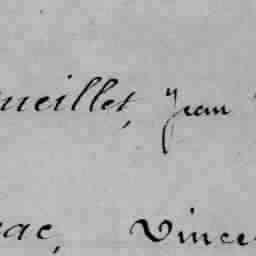 ueillet, Jean
ac, Vince